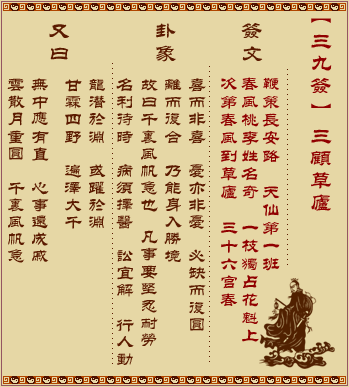 【三九簽】 三顧草廬
簽文
鞭策長安路 天仙第一班
春風桃李姓名奇 一枝獨占花魁上
次第春風到草廬 三十六宮春
卦象
喜而非喜 憂亦非憂 必缺而復圓
離而復合 乃能身入勝境
故曰千裏風帆急也 凡事要堅忍耐勞
名利待時 病須擇醫 訟宜解 行人動
又曰
龍潛於淵 或躍於淵
甘霖四野 遍澤大千
無中應有直 心事還成戚
雲散月重圓 千裏風帆急